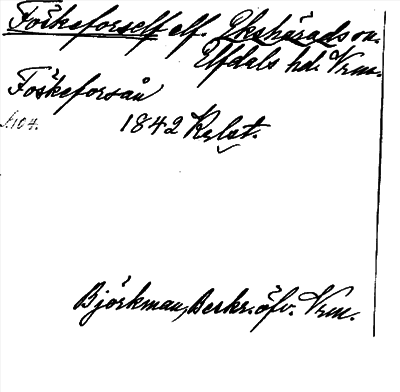 Föskeforself elf. Ekshärads sn.
Elfdals hd. Vrm.
Föskeforsån
s. 104. 1842 Relat.
Björkman, Beskr. öfv. Vrm.